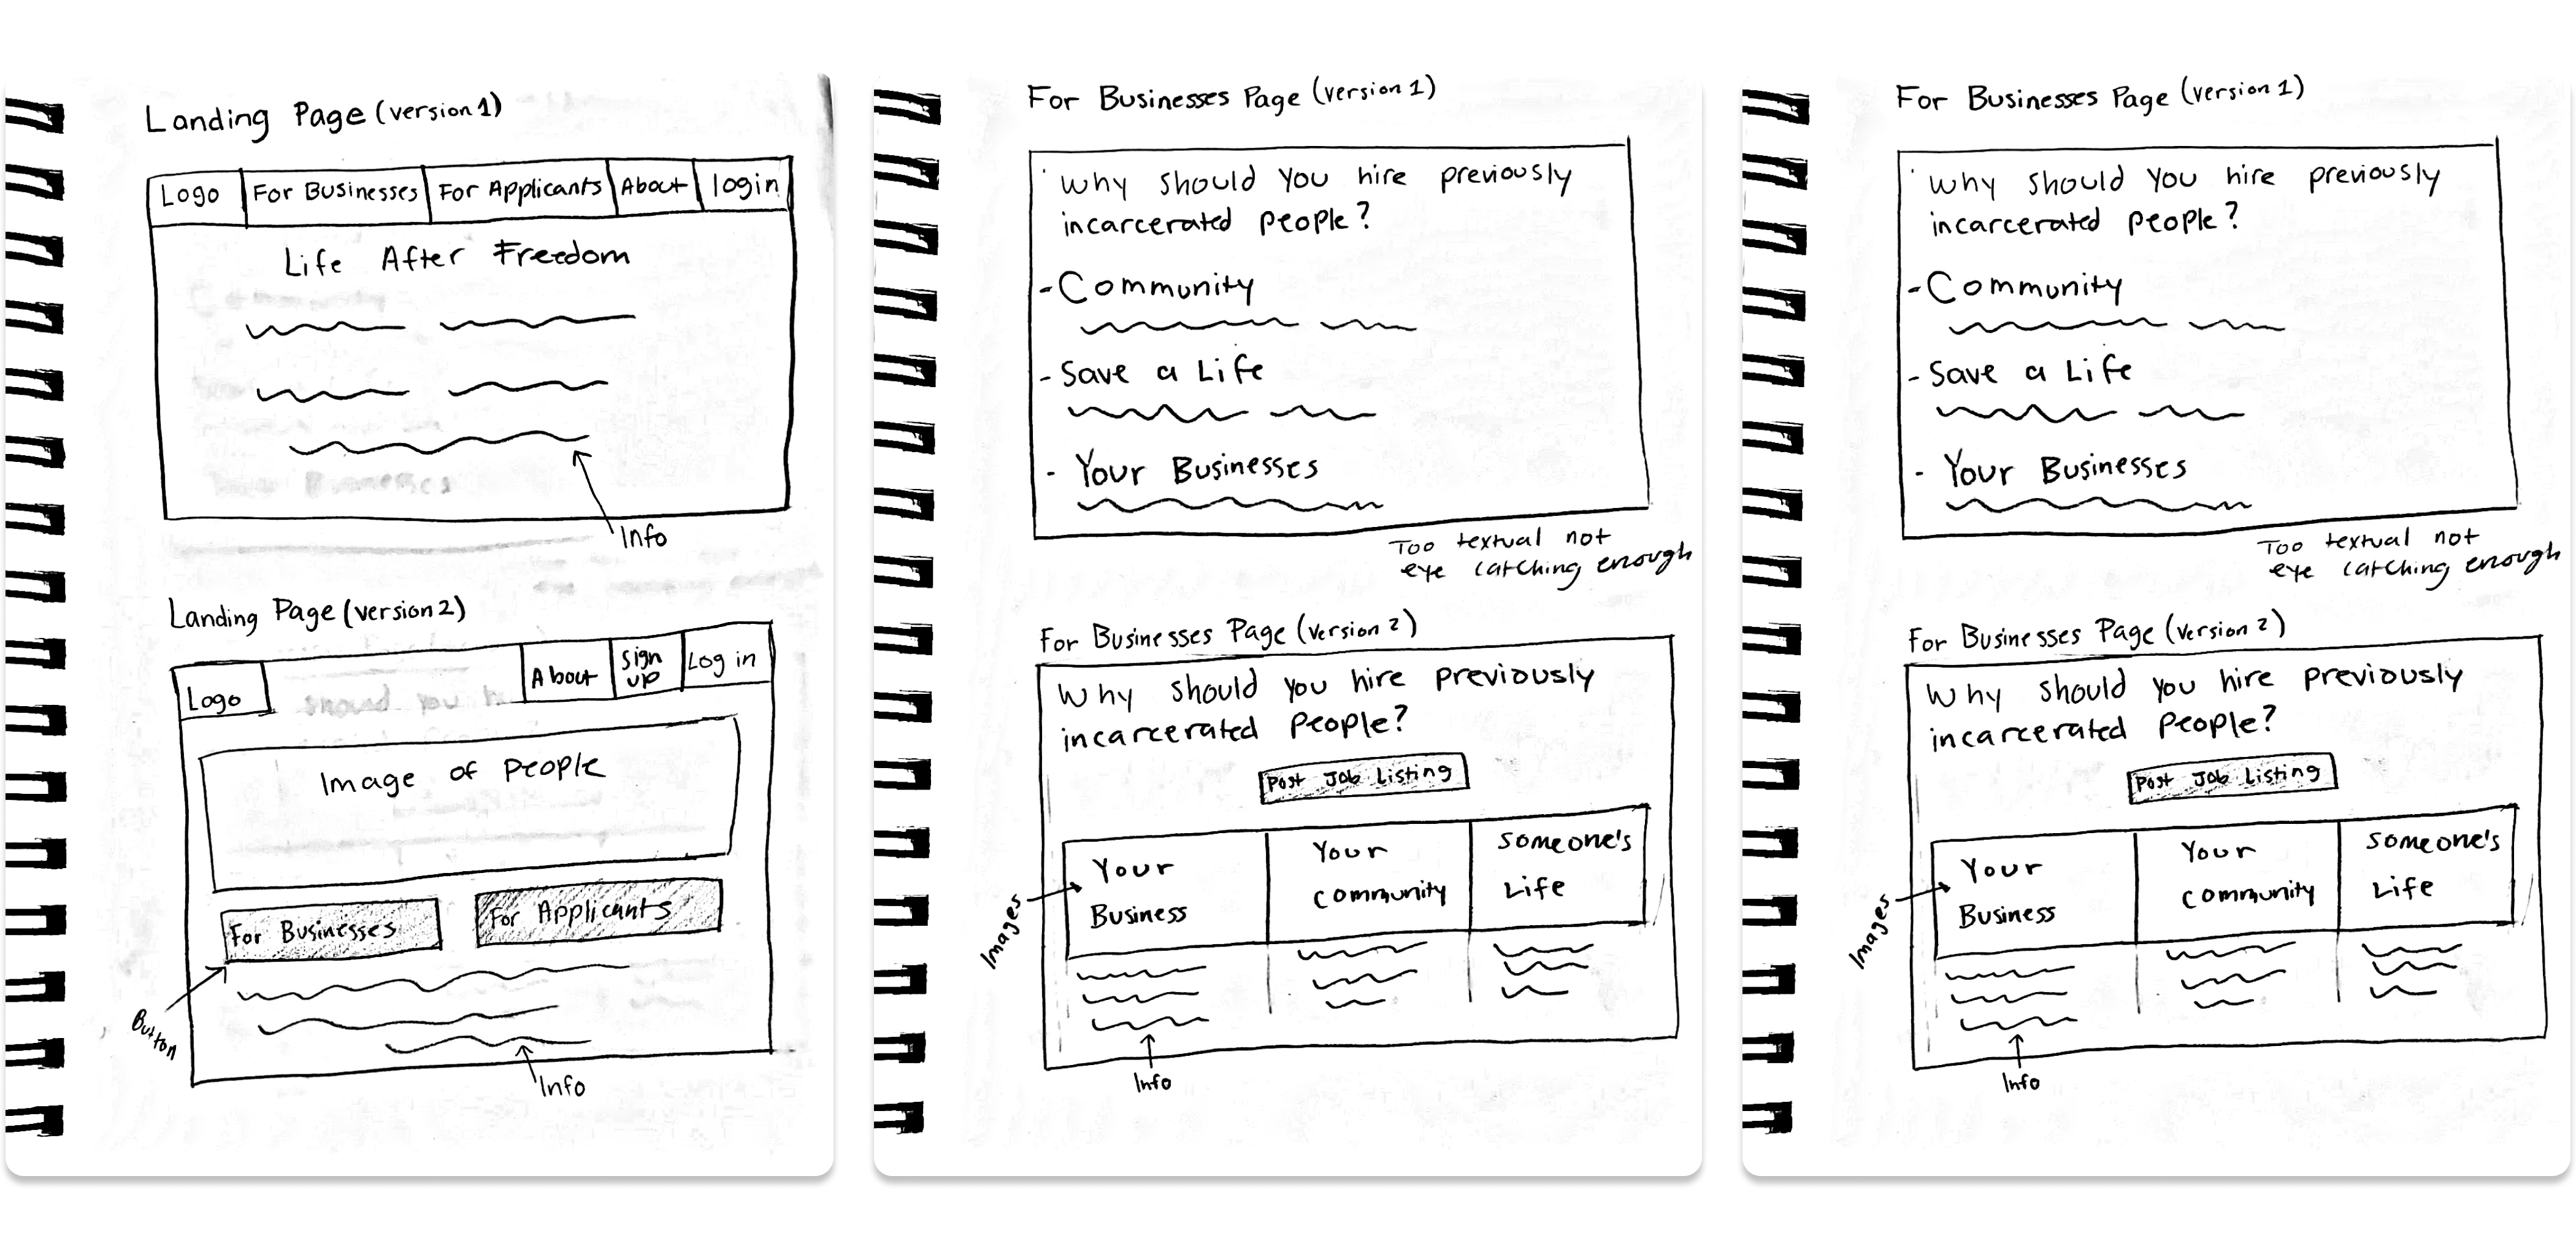 Landing Page (version 1)
Logo For Businesses For Applicants About login
Life After Freedom
Info
Landing Page (version 2)
Logo About Sign up Log in
Image of People
For Businesses For Applicants
Button
Info
For Businesses Page (version 1)
Why should you hire previously
incarcerated people?
- Community
- Save a Life
- Your Businesses
Too textual not
eye catching enough
For Businesses Page (version 2)
Why should you hire previously
incarcerated People?
Post Job Listing
Your
Business
Your
community
someone's
Life
Images
Info
For Businesses Page (version 1)
Why should you hire previously
incarcerated people?
- Community
- Save a Life
- Your Businesses
Too textual not
eye catching enough
For Businesses Page (version 2)
Why should you hire previously
incarcerated People?
Post Job Listing
Your
Business
Your
community
someone's
Life
Images
Info